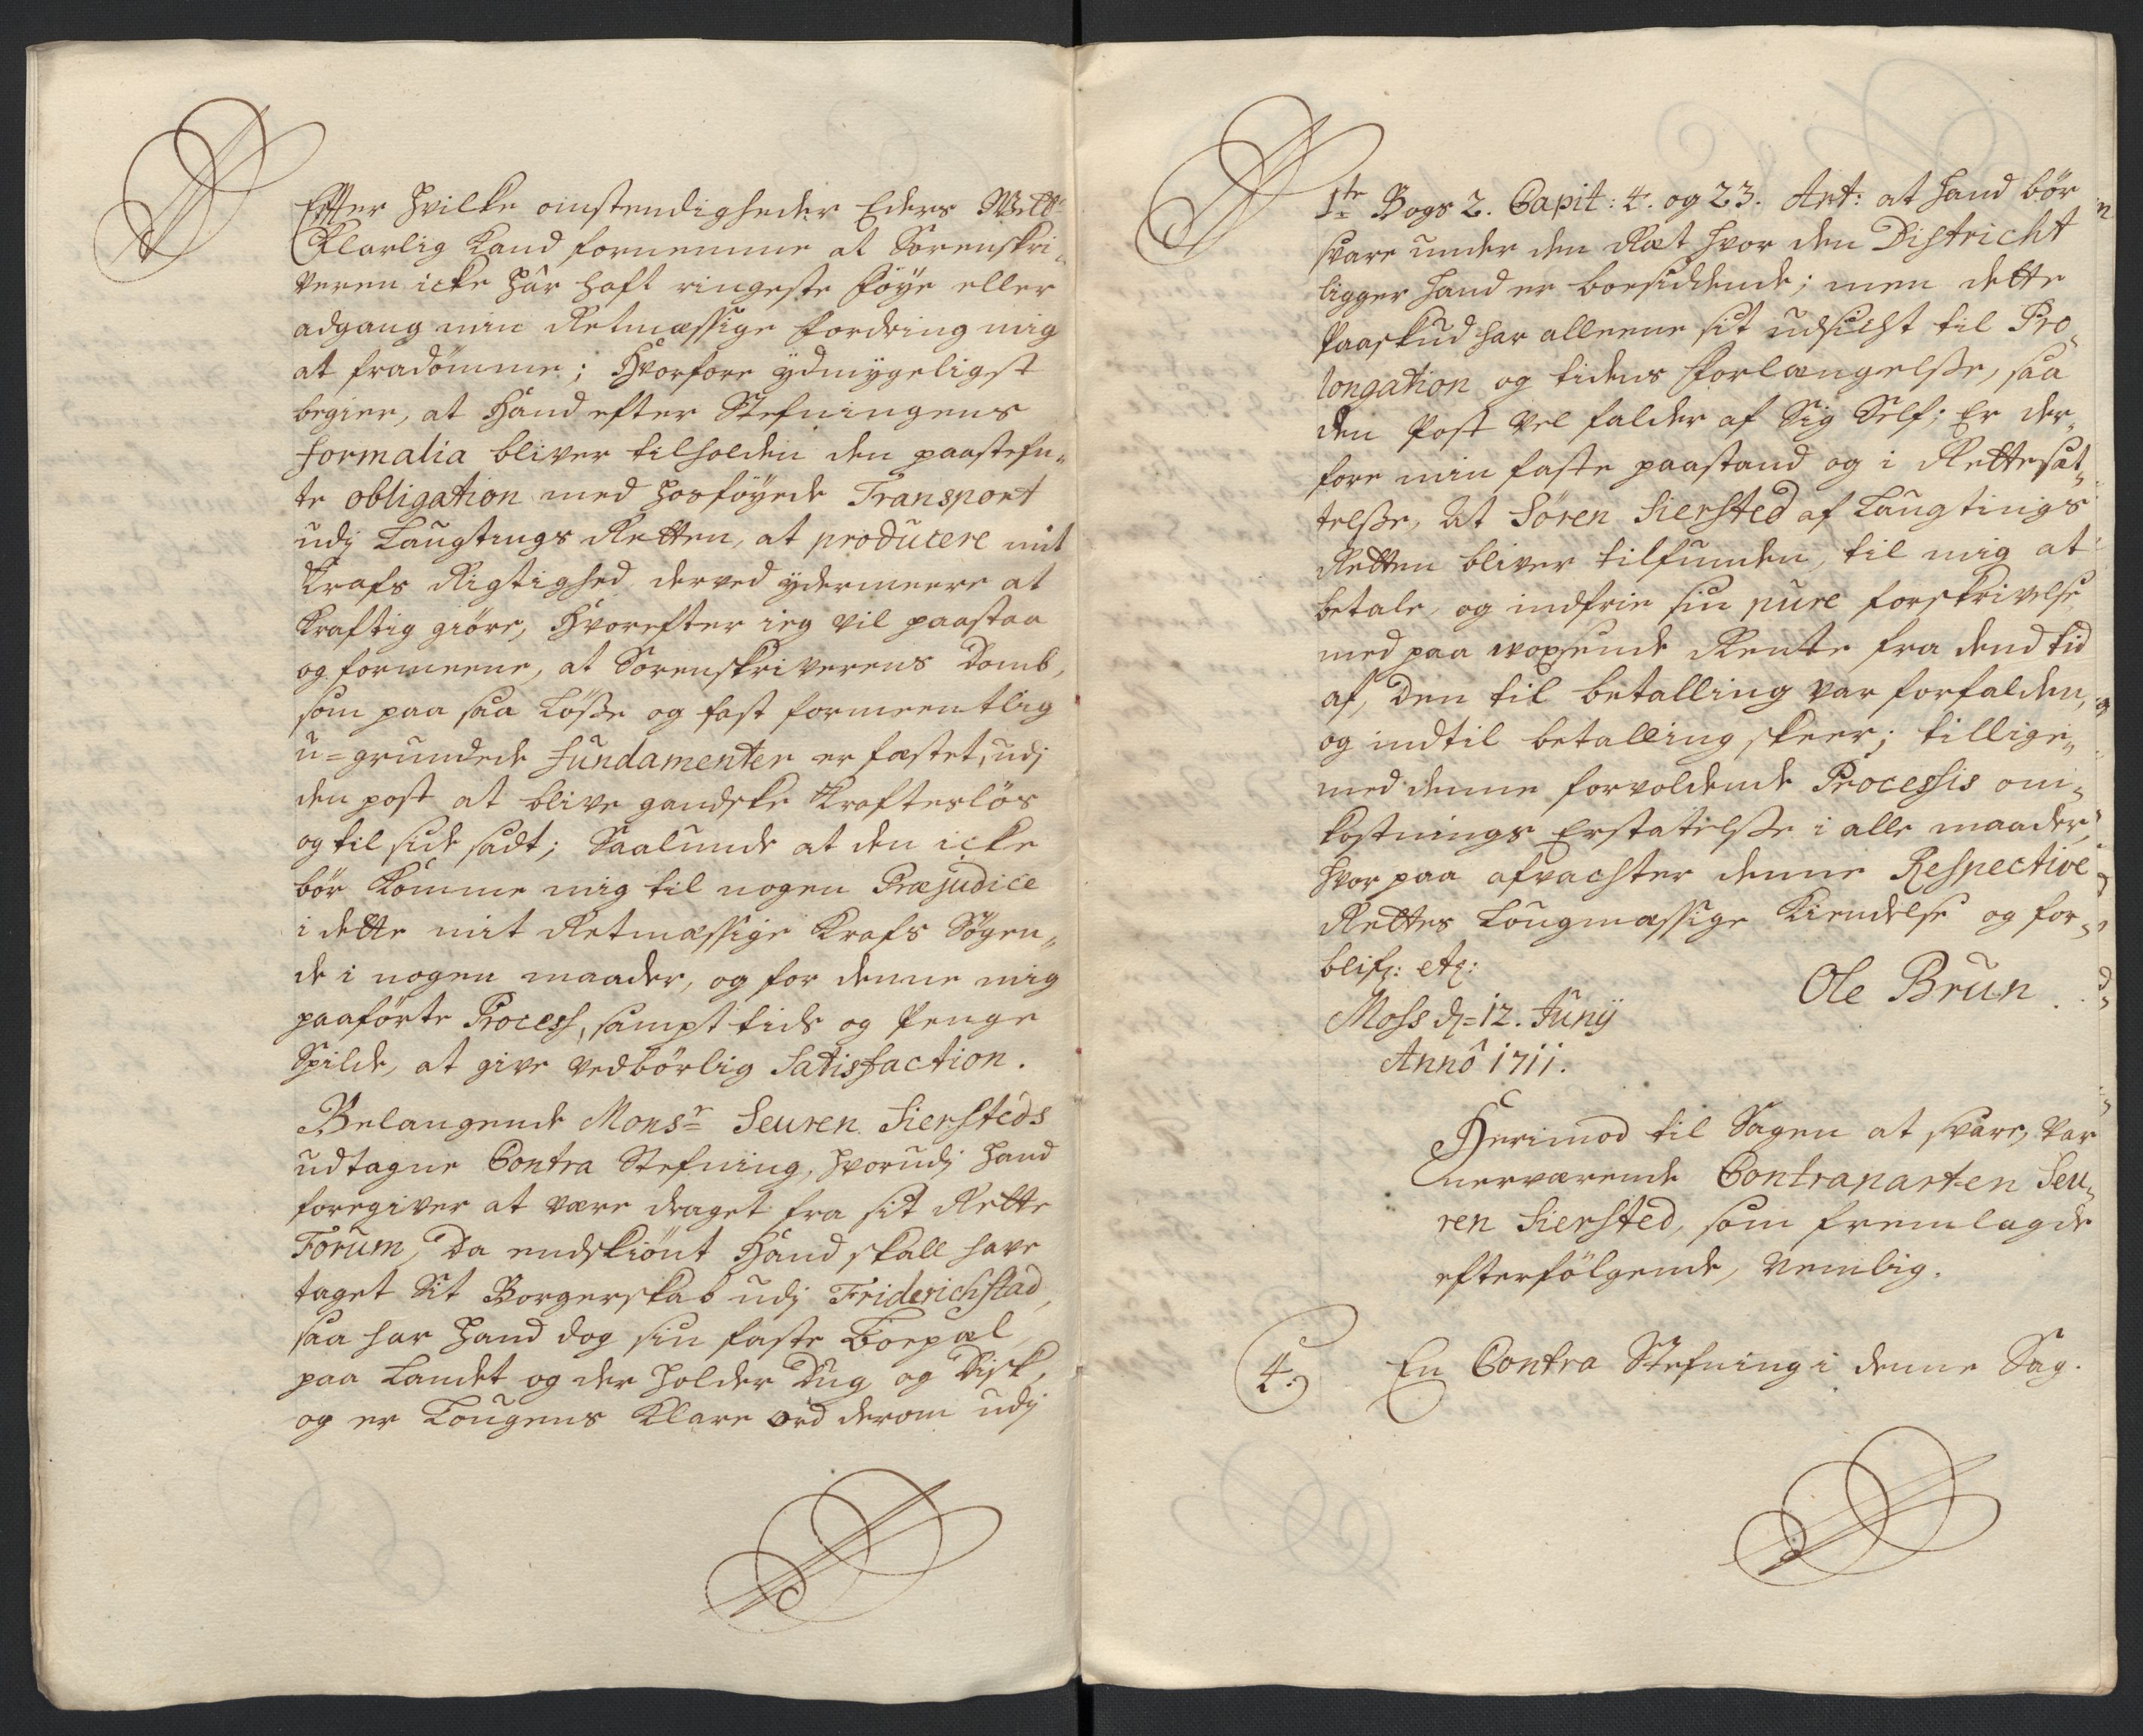 Efter hvilke omstendigheder Eders Welb:
Klarlig kand fornemme at Sorenskri„
veren icke hâr haft ringeste föye eller
adgang min Retmæssige fordring mig
at fradömme; Hvorfore ydmygeligst
begier, at Hand efter Stefningens
formalia bliver tilholden den paastefn„
te obligation med hosföyede Transport
udj Laugtings Retten, at producere mit
Krafs Rigtighed derved ydermeere at
Kraftig giöre, Hvorefter ieg vil paastaa
og formeene, at Sorenskriverens Domb,
som paa saa Lösse og fast formeentlig
u=grundede fundamenter er fæstet, udj
den post at blive gandske Krafteslös
og til side sadt; Saalunde at den icke
bör Komme mig til nogen Præjudice
i dette mit Retmæssige Krafs Sögen„
de i nogen maader, og for denne mig
paaförte Process, sampt tids og Penge
Spilde, at give vedbörlig Satisfaction.
Belangende Monsr Seuren Siersteds
udtagne Contra Stefning, hvorudj hand
foregiver at være draget fra sit Rette
Forum, Da endskiönt Hand skall have
taget Sit Borgerskab udj Friderichstad,
saa har hand dog sin faste Boepæl
paa Landet og der holder Dug og Disk,
og er Lougens Klare ord derom udj
1te Bogs 2. Capit: 4. og 23. Art: at hand bör
svare under den Ræt hvor den Districht
ligger hand er boesiddende; men dette
Paaskud har alleene sit udsicht til Pro„
longation og tidens forlængelsse, saa
den Post vel falder af Sig Self; Er der„
fore min faste paastand og i Rettesæt„
telsse, At Sören Siersted af Laugtings
Retten bliver tilfunden, til mig at
betale og indfrie sin pure forskrivelse
med paa woxsende Rente fra dend tid
af, Den til betalling var forfalden,
og indtil betalling skeer; tillige„
med denne forvoldende Processis om„
kostnings Erstatelsse i alle maader,
hvor paa afvachter denne Respective
Rettes Lougmæssige Kiendelse og for„
blifr: etc:
Ole Brun
Moss d=12. Junij
Annô 1711.
Herimod til Sagen at svare, var
nerværende Contraparten Seu„
ren Siersted, som fremlagde
efterfölgende, Nemlig.
4:) En Contra Stefning i denne Sag.